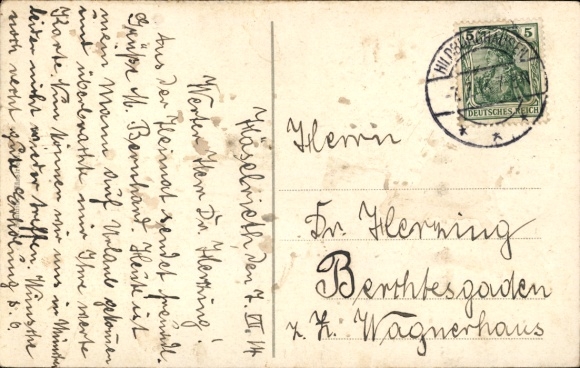 Häselrieth, den 7. VII. 14
Werter Herr Dr. Herzing!
Aus der Heimat sendet freundl.
Grüße M. Bernhard. Heute ist
mein Mann auf Urlaub gekommen
und überbracht mir Ihre werte
Karte. Nun können wir uns in
leider nicht wieder treffen. Wünsche
noch recht gute Erholung
Herrn
Dr. Herzing
Berchtesgaden
z. Zt. Wagnerhaus
HILDBURGHAUSEN
5 5
DEUTSCHES REICH